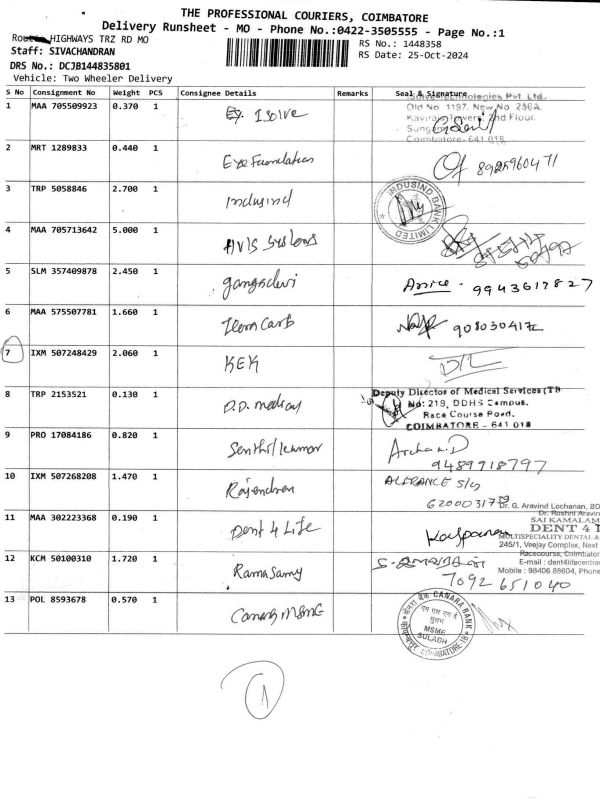 THE PROFESSIONAL COURIERS, COIMBATORE
Delivery Runsheet - MO - Phone No.:0422-3505555 - Page No.:1
HIGHWAYS TRZ RD MO
RS No.: 1448358
Staff: SIVACHANDRAN
RS Date: 25-Oct-2024
DRS No.: DCJB144835801
Vehicle: Two Wheeler Delivery
S No Consignment No Weight PCS Consignee Details Remarks Seal & Signature
1 MAA 705509923 0.370 1 Isolve
Old No 1197, New No 290A
Coimbatore - 641 018
2 MRT 1289833 0.440 1 Eye Foundation
3 TRP 5058846 2.700 1 Indusind
INDUSIND BANK LIMITED
4 MAA 705713642 5.000 1 AVIS Systems
5 SLM 357409878 2.450 1 9943617827
6 MAA 575507781 1.660 1
7 IXM 507248429 2.060 1 KEK
8 TRP 2153521 0.130 1 D.D. medical
Deputy Director of Medical Services (TB
No: 219, DDHS Campus,
Race Course Road,
COIMBATORE - 641 018
9 PRO 17084186 0.820 1 Senthil kumar
Archa D
9489918797
10 IXM 507268208 1.470 1 Rajendran
11 MAA 302223368 0.190 1 Dent 4 Life
Kalpana
Dr. G. Aravind Lochanan, BD
Dr. Roshni Aravin
SAI KAMALAM
DENT 4 L
MULTISPECIALITY DENTAL &
245/1, Veejay Complex, Next
Racecourse, Coimbator
E-mail : dent4lifecentre
Mobile : 98406 88604, Phone
12 KCM 50100310 1.720 1 Ramasamy
7092 651040
13 POL 8593678 0.570 1 Canara MSME
CANARA BANK
MSME
SULABH
1